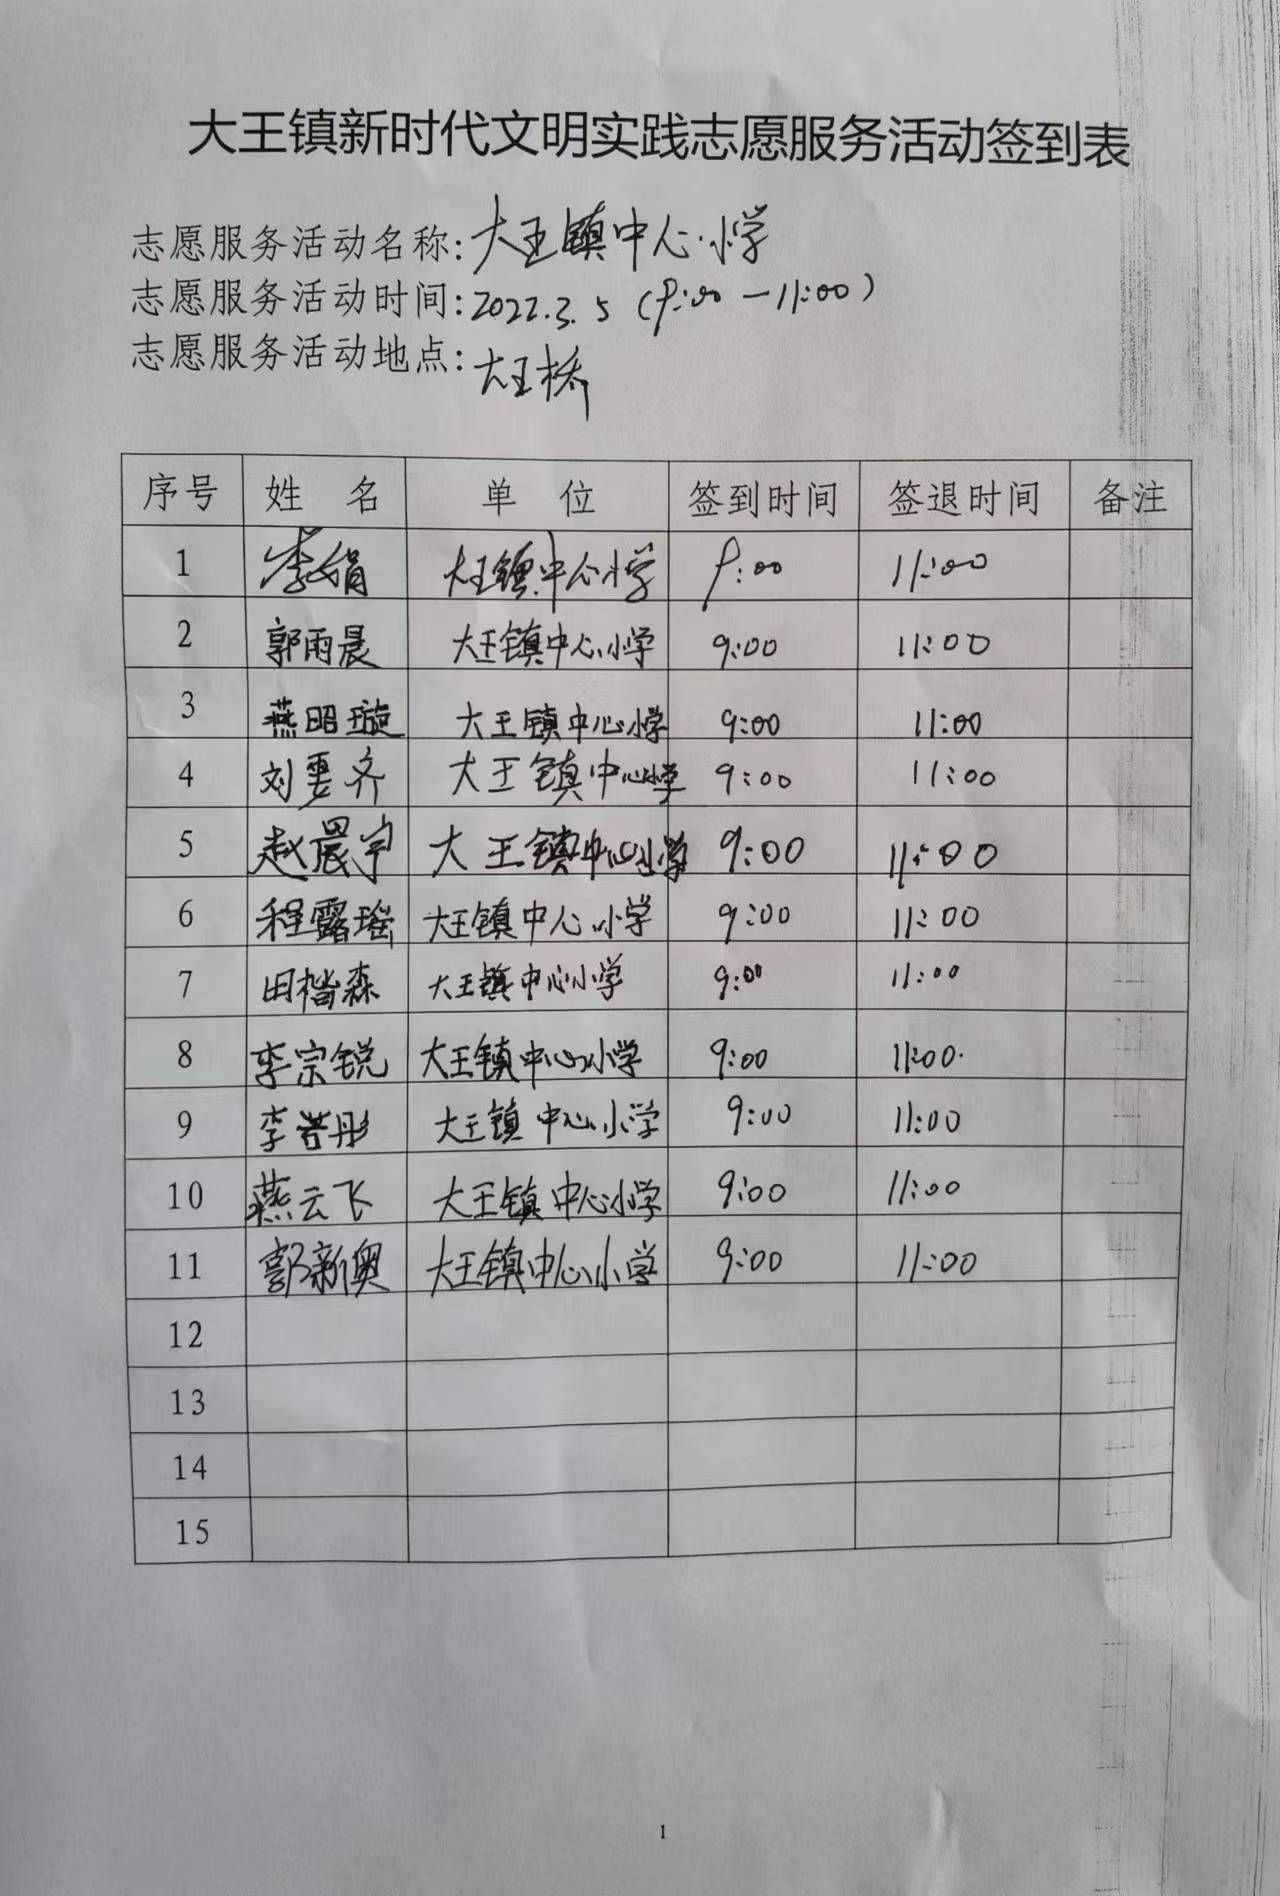 大王镇新时代文明实践志愿服务活动签到表
志愿服务活动名称:大王镇中心小学
志愿服务活动时间:2022.3.5(9:00—11:00)
志愿服务活动地点:大王桥
序号 姓名 单位 签到时间 签退时间 备注
1 李娟 大王镇中心小学 9:00 11:00
2 郭雨晨 大王镇中心小学 9:00 11:00
3 燕昭璇 大王镇中心小学 9:00 11:00
4 刘雯齐 大王镇中心小学 9:00 11:00
5 赵晨宇 大王镇中心小学 9:00 11:00
6 程露瑶 大王镇中心小学 9:00 11:00
7 田楷森 大王镇中心小学 9:00 11:00
8 李宗锐 大王镇中心小学 9:00 11:00
9 李若彤 大王镇中心小学 9:00 11:00
10 燕云飞 大王镇中心小学 9:00 11:00
11 郭新奥 大王镇中心小学 9:00 11:00
12
13
14
15
1